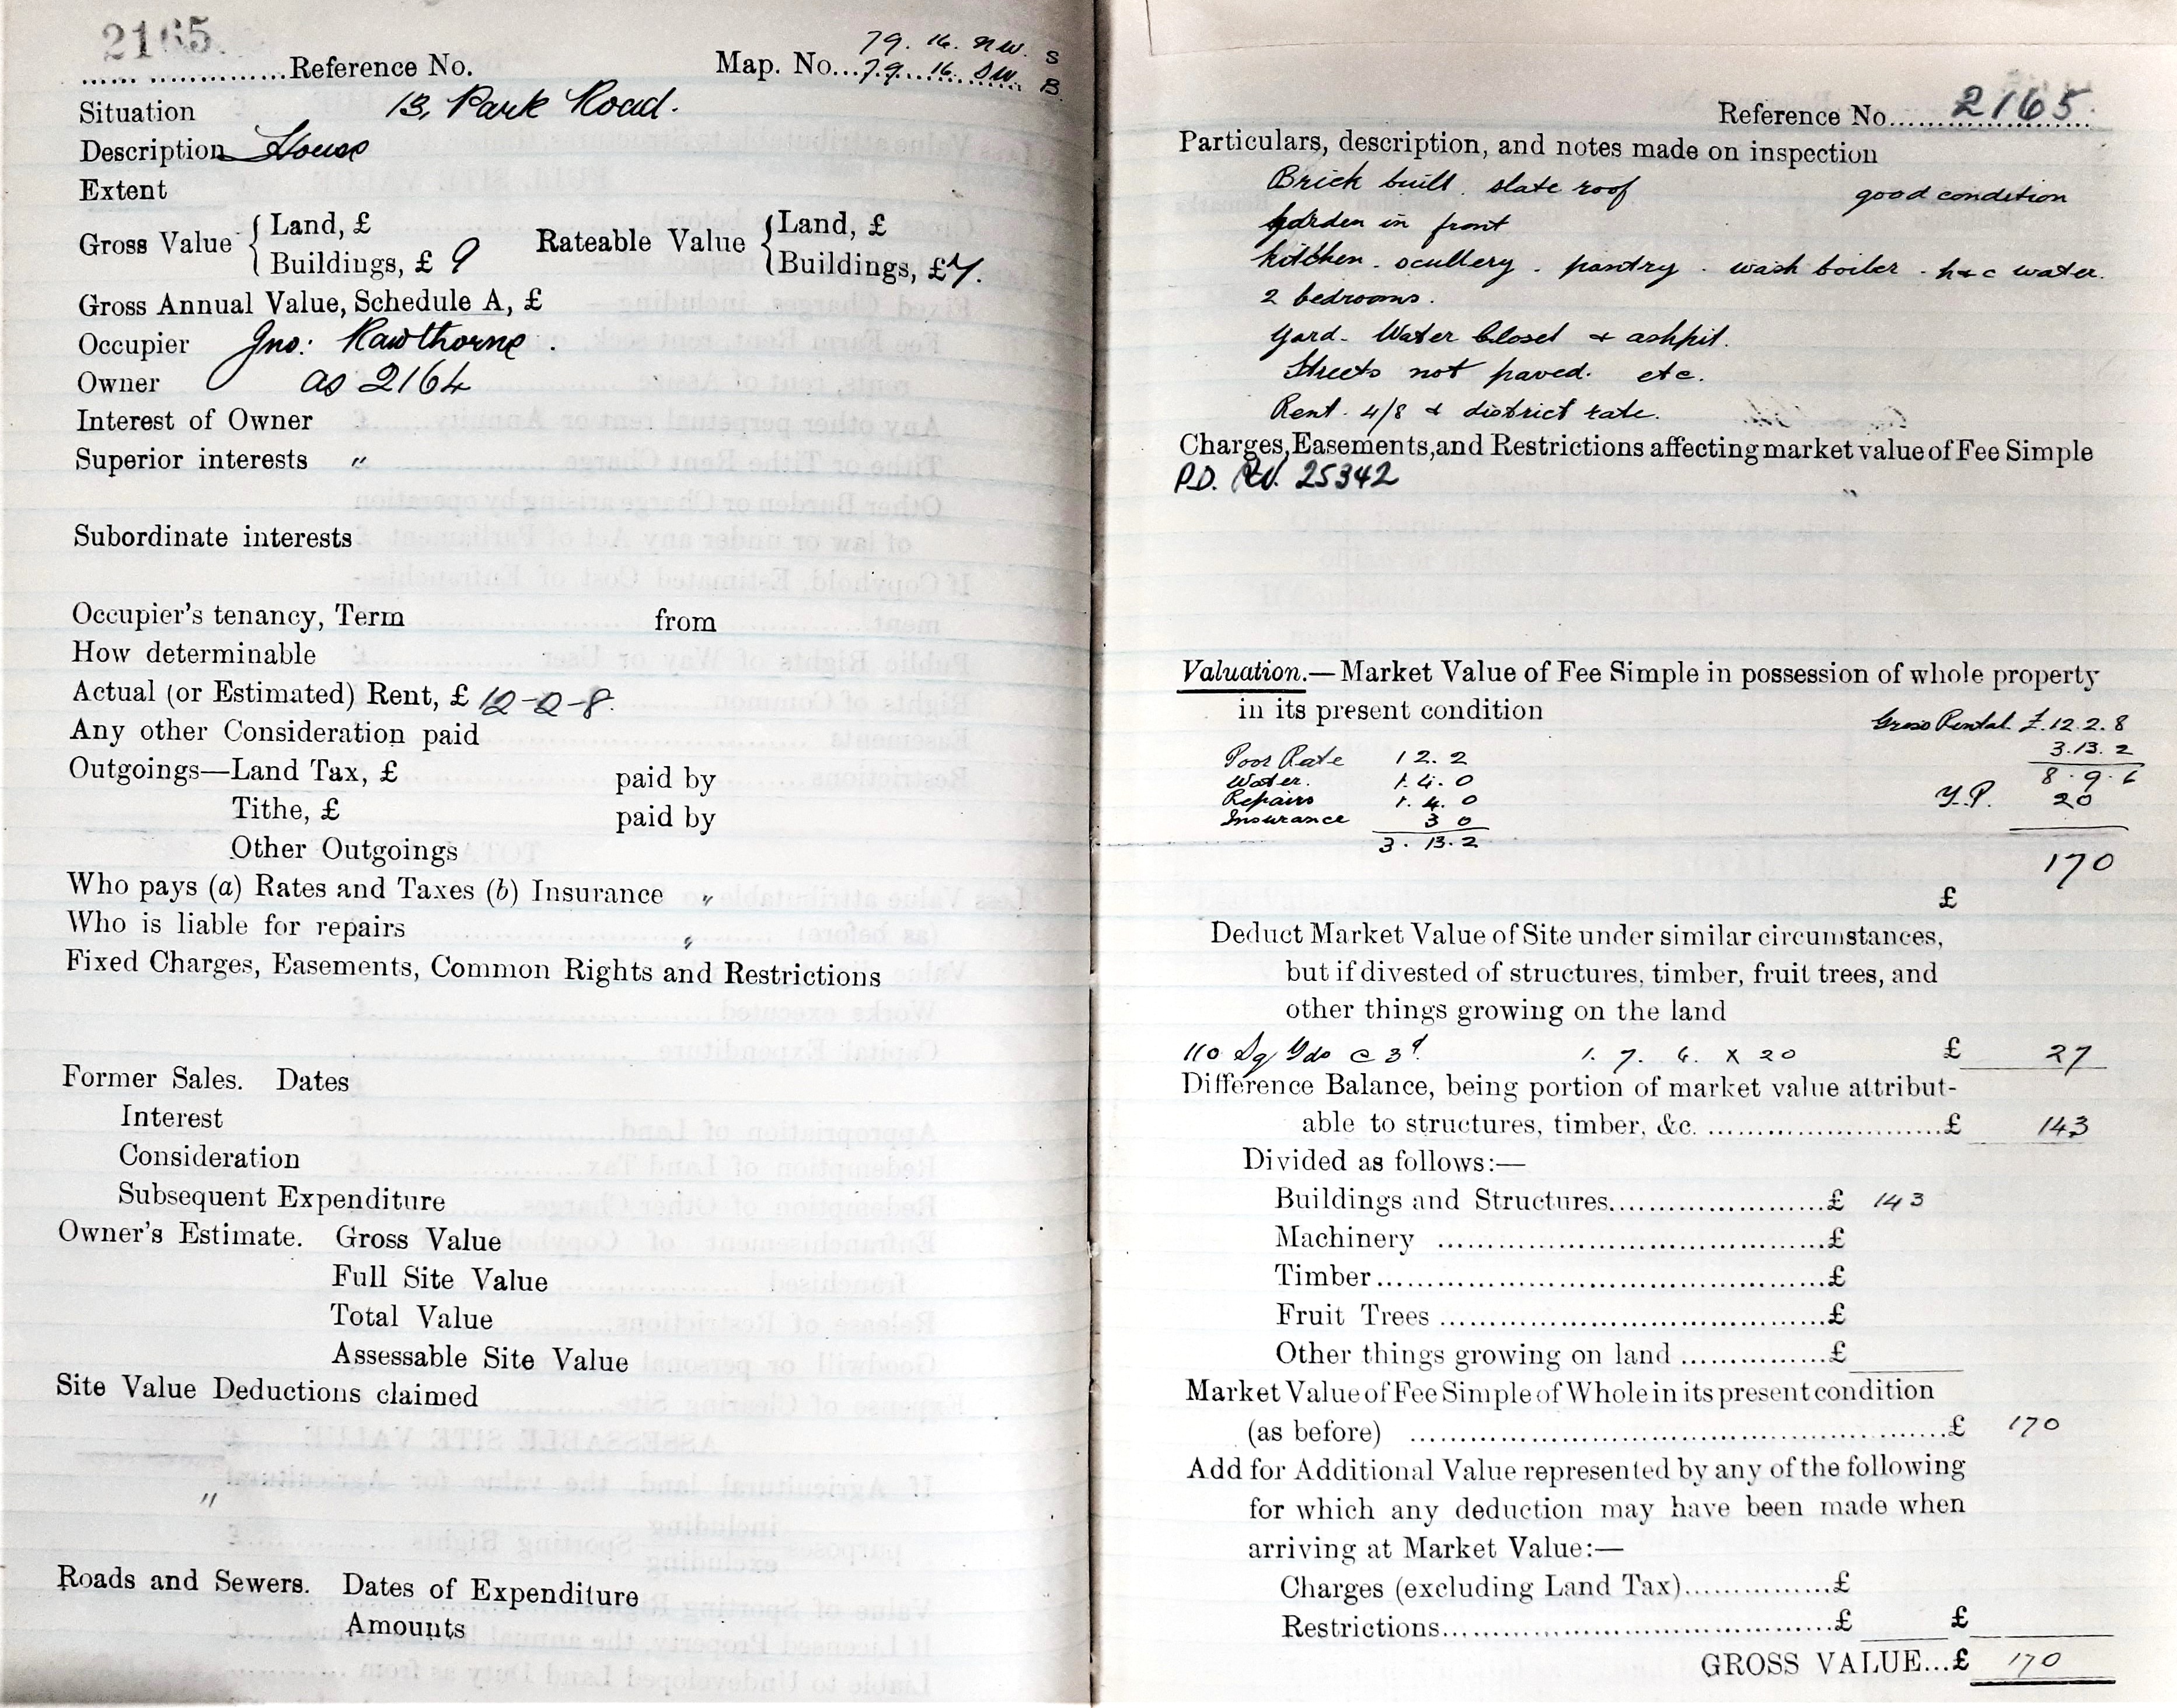 2165.
Reference No. Map. No. 79. 16. NW. S
79. 16. SW. B.
Situation 13, Park Road.
Description House
Extent
Gross Value { Land, £ Rateable Value { Land, £
Buildings, £ 9 Buildings, £ 7.
Gross Annual Value, Schedule A, £
Occupier Jno: Rawthorne.
Owner as 2164
Interest of Owner
Superior interests "
Subordinate interests
Occupier's tenancy, Term from
How determinable
Actual (or Estimated) Rent, £ 12-2-8.
Any other Consideration paid
Outgoings—Land Tax, £ paid by
Tithe, £ paid by
Other Outgoings
Who pays (a) Rates and Taxes (b) Insurance "
Who is liable for repairs "
Fixed Charges, Easements, Common Rights and Restrictions
Former Sales. Dates
Interest
Consideration
Subsequent Expenditure
Owner's Estimate. Gross Value
Full Site Value
Total Value
Assessable Site Value
Site Value Deductions claimed
"
Roads and Sewers. Dates of Expenditure
Amounts
Reference No. 2165.
Particulars, description, and notes made on inspection
Brick built. slate roof good condition
garden in front
kitchen. scullery. pantry. wash boiler. h & c water.
2 bedrooms.
Yard. Water Closet & ashpit.
Streets not paved. etc.
Rent. 4/8 & district rate.
Charges, Easements, and Restrictions affecting market value of Fee Simple
P.D. 25342
"
Valuation.—Market Value of Fee Simple in possession of whole property
in its present condition
Gross Rental £.12.2.8
Poor Rate 12.2 3.13.2
Water. 1.4.0 8.9.6
Repairs 1.4.0 Y.P. 20
Insurance 3 0
3.13.2
170
£
Deduct Market Value of Site under similar circumstances,
but if divested of structures, timber, fruit trees, and
other things growing on the land
110 Sq Yds @ 3d. 1. 7. 6. x 20 £ 27
Difference Balance, being portion of market value attribut-
able to structures, timber, &c. £ 143
Divided as follows:—
Buildings and Structures £ 143
Machinery £
Timber £
Fruit Trees £
Other things growing on land £
Market Value of Fee Simple of Whole in its present condition
(as before) £ 170
Add for Additional Value represented by any of the following
for which any deduction may have been made when
arriving at Market Value:—
Charges (excluding Land Tax) £
Restrictions £ £
GROSS VALUE...£ 170